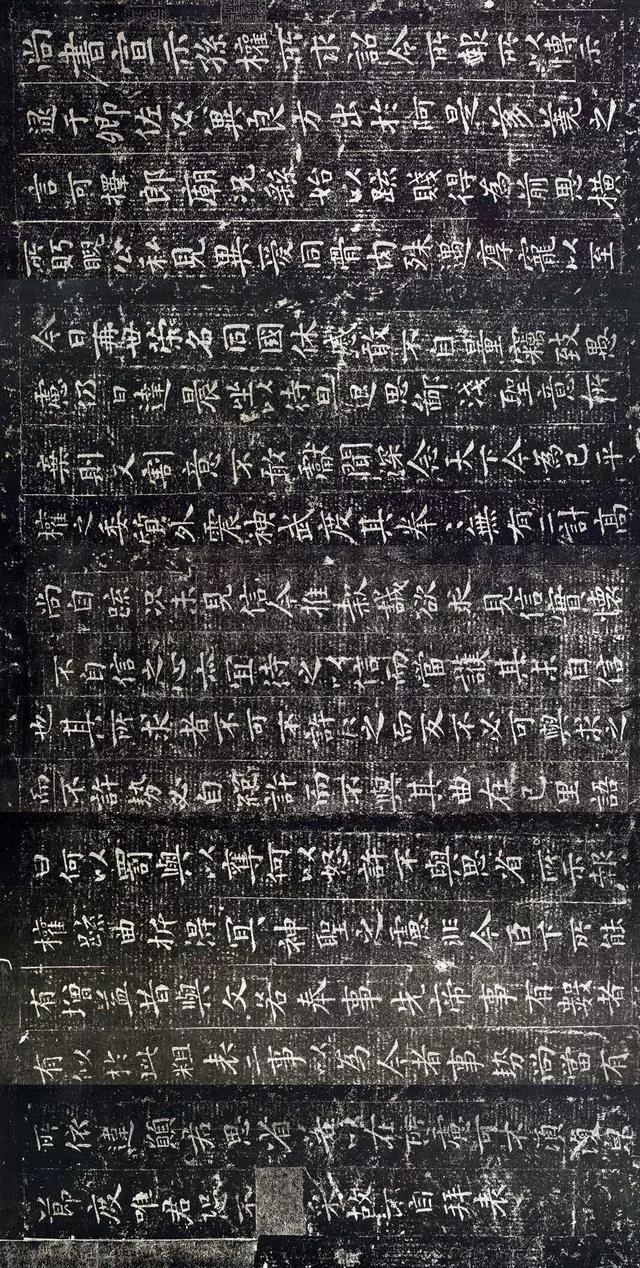 尚書宣示孫權所求詔令所報所以博示
逮于卿佐必冀良方出於阿是芻蕘之
言可擇郎廟況繇始以疏賤得為前恩橫
所盱睨公私見異愛同骨肉殊遇厚寵以至
今日再世榮名同國休慼敢不自量竊致愚
慮仍日達晨坐以待旦退思鄙淺聖意所
棄則又割意不敢獻聞深念天下今為已平
權之委質外震神武度其拳〻無有二計高
尚自疏況未見信今推款誠欲求見信實懷
不自信之心亦宜待之以信而當護其未自信
也其所求者不可不許許之而反不必可與求之
而不許勢必自絕許而不與其曲在己里語
曰何以罰與以奪何以怒許不與思省所示報
權疏曲折得宜宜神聖之慮非今臣下所能
有增益昔與文若奉事先帝事有數者
有似於此粗表二事以為今者事勢尚當有
所依違願君思省若以在所慮可不須
節度唯君恐不采故不自拜表